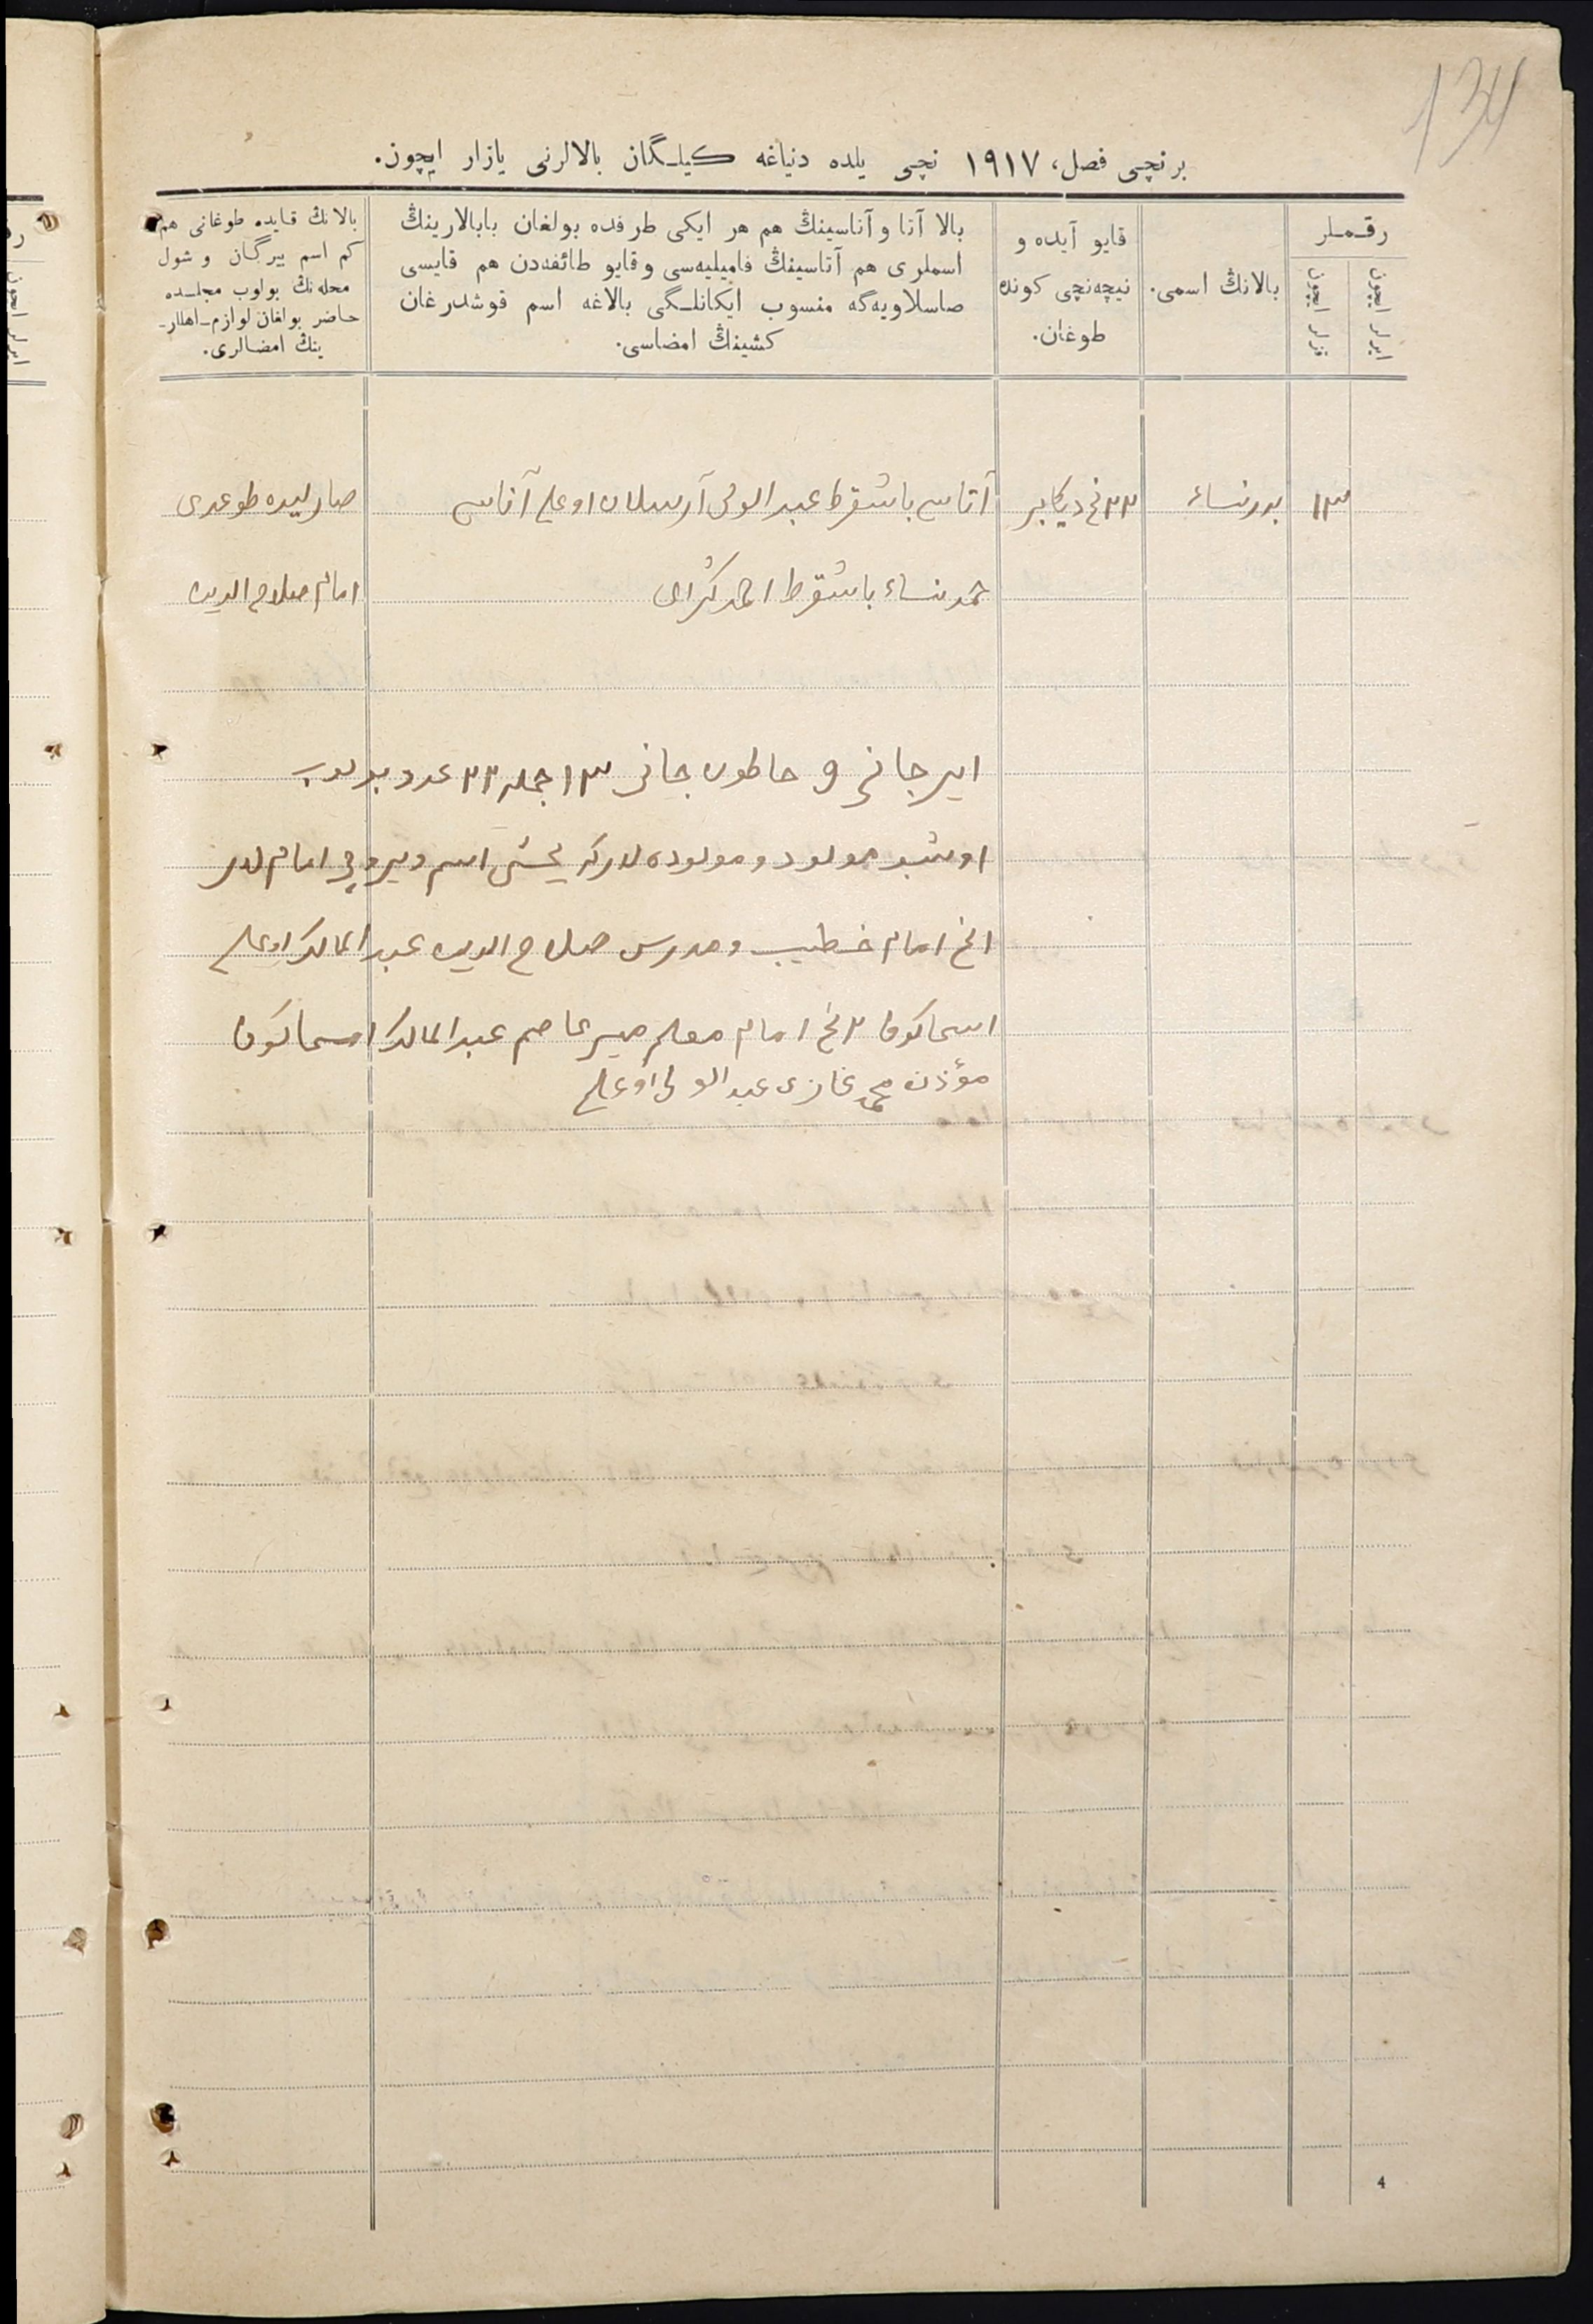 134
برنچی فصل، ١٩١٧ نچی یلده دنیاغه کیلـگان بالالرنی یازار ایچون.
رقـملر
ایرلر ایچون
قزلر ایچون
بالانڭ اسمی.
قایو آیده و
نیچه‌نچی کونده
طوغان.
بالا آتا و آناسینڭ هم هر ایکی طرفده بولغان بابالارینڭ
اسملری هم آتاسینڭ فامیلیه‌سی و قایو طائفه‌دن هم قایسی
صاسلاویه‌گه منسوب ایکانلـگی بالاغه اسم قوشدرغان
کشینڭ امضاسی.
بالانڭ قایده طوغانی هم
کم اسم بیرگان و شول
محله‌نڭ بولوب مجلـسده
حاضر بولغان لوازم‌اهللار-
ینڭ امضالری.
١٣
بدرنساء
٢٣ نچ دیکابر
آتاسی باشقرط عبدالولی آرسلان اوغلی آناسی
صارلیده طوغدی
باشقرط احمد
امام صلاح الدین
ایر جانی ٩ خاطون جانی ١٣ جمله ٢٢ عدد بولوب
اوشبو مولود و مولوده لارکه یخشی اسم ویروچی امام لار
١ نچ امام خطیب و مدرس صلاح الدین عبدالمالک اوغلی
اسحاکوف ٢ نچ امام معلم میر عاصم عبدالمالک اسحاکوف
مؤذن محمد غازی عبدالولی اوغلی
4